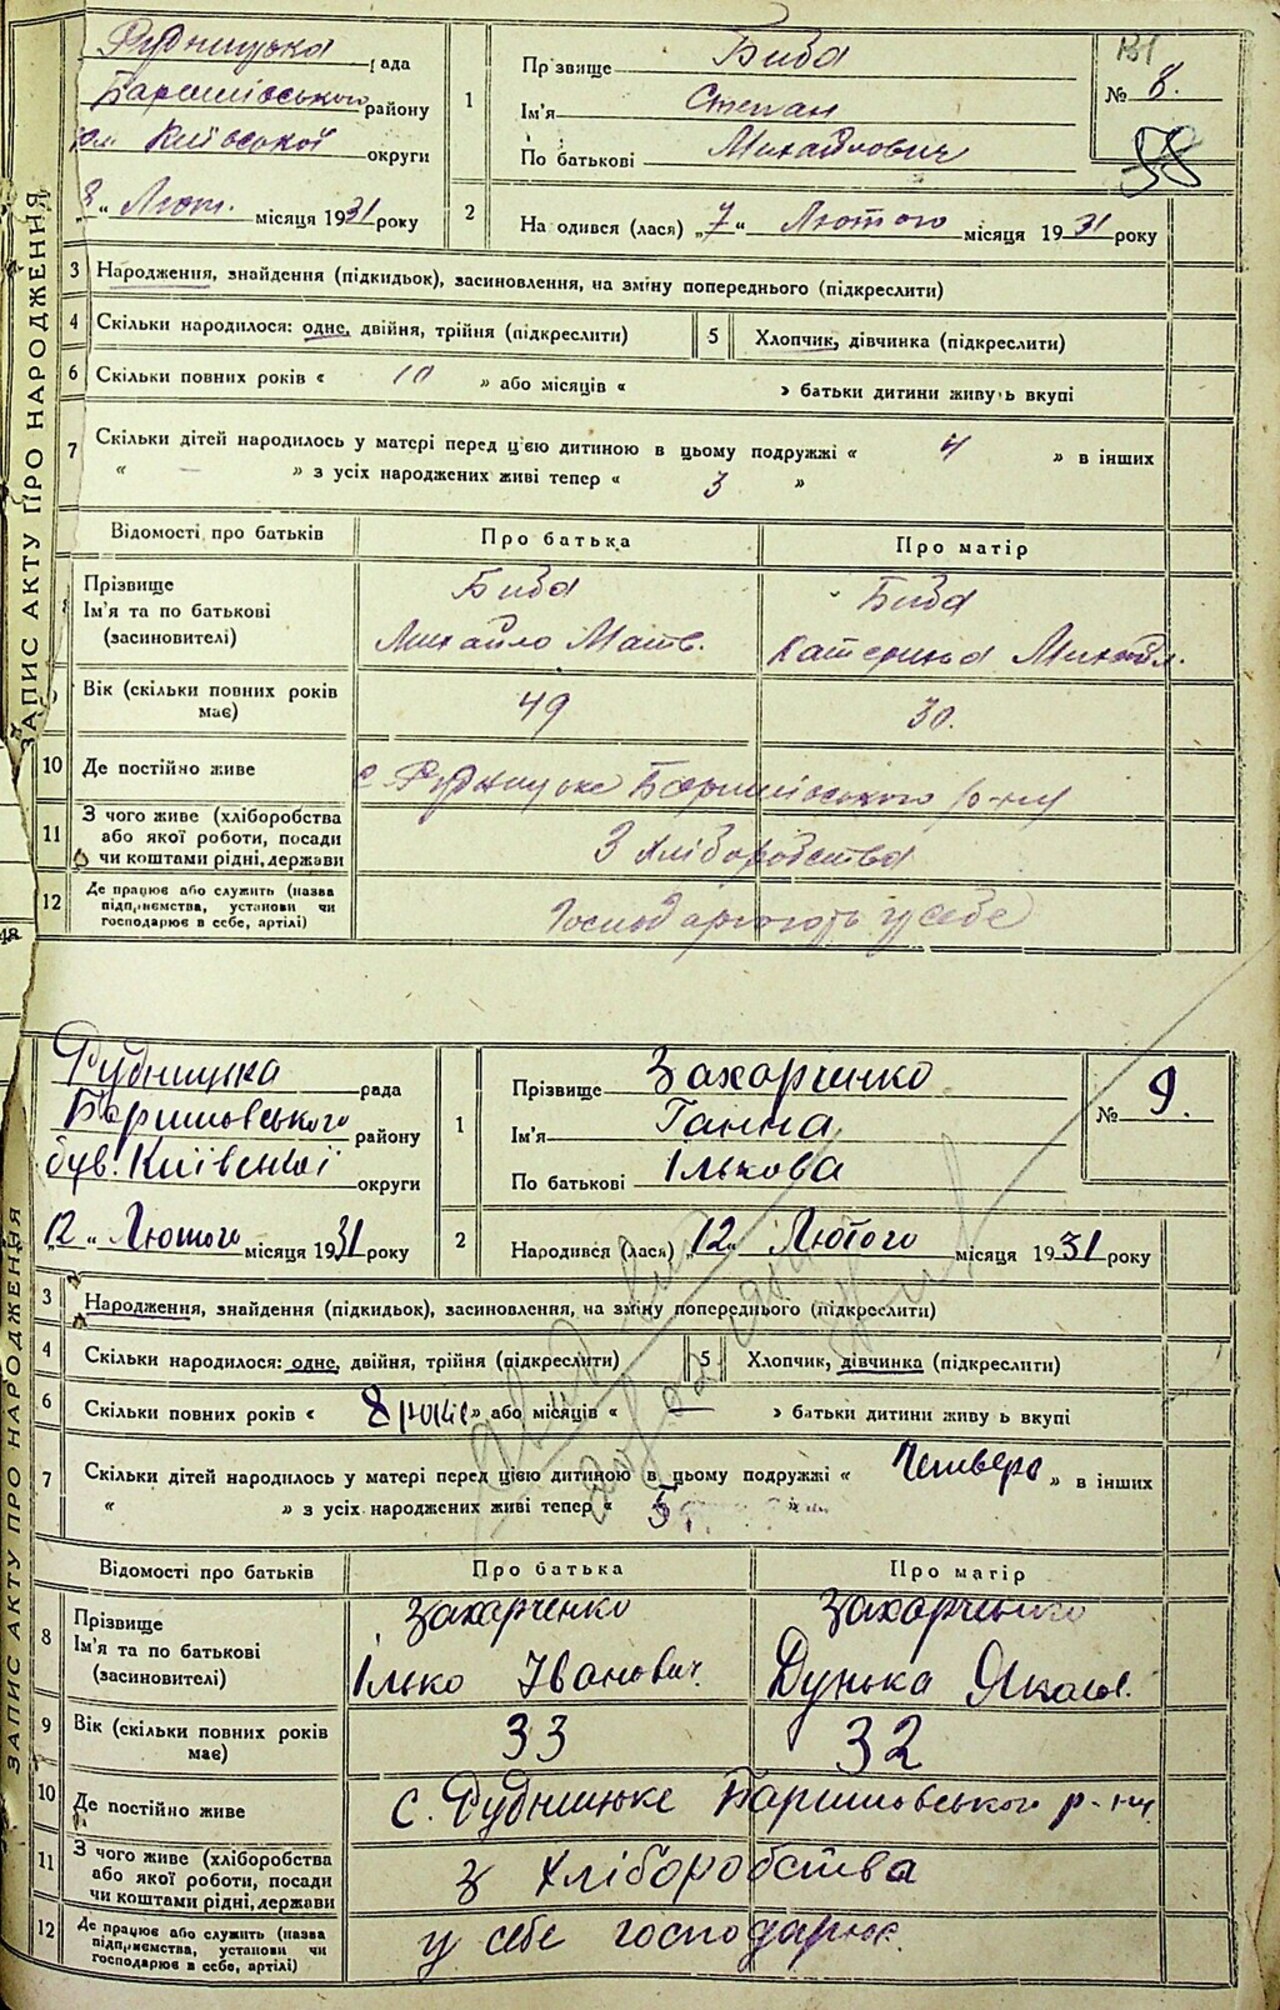 ЗАПИС АКТУ ПРО НАРОДЖЕННЯ
Рудницька рада
Баришівського району
Київської округи
8 „ Лют. місяця 1931 року
1
Прізвище Биба
Ім'я Степан
По батькові Михайлович
№ 8.
58
2
На одився (лася) „7“ Лютого місяця 1931 року
3 Народження, знайдення (підкидьок), засиновлення, на зміну попереднього (підкреслити)
4 Скільки народилося: одне, двійня, трійня (підкреслити)
5 Хлопчик, дівчинка (підкреслити)
6 Скільки повних років « 10 » або місяців « » батьки дитини живу ь вкупі
7 Скільки дітей народилось у матері перед цією дитиною в цьому подружжі « 4 » в інших
« — » з усіх народжених живі тепер « 3 »
Відомості про батьків Про батька Про матір
Прізвище
Ім'я та по батькові
(засиновителі)
Биба
Михайло Матв.
Биба
Катерина Михайл.
9 Вік (скільки повних років має) 49 30.
10 Де постійно живе с. Рудницьке Баришівського р-ну
11 З чого живе (хліборобства або якої роботи, посади чи коштами рідні, держави З хліборобства
12 Де працює або служить (назва підприємства, установи чи господарює в себе, артілі) Господарюють у себе
ЗАПИС АКТУ ПРО НАРОДЖЕННЯ
Рудницька рада
Баришовського району
був. Київської округи
„12“ Лютого місяця 1931 року
1
Прізвище Захарченко
Ім'я Ганна
По батькові Ількова
№ 9.
2
Народився (лася) „12“ Лютого місяця 1931 року
3 Народження, знайдення (підкидьок), засиновлення, на зміну попереднього (підкреслити)
4 Скільки народилося: одне, двійня, трійня (підкреслити)
5 Хлопчик, дівчинка (підкреслити)
6 Скільки повних років « 8 років » або місяців « — » батьки дитини живу ь вкупі
7 Скільки дітей народилось у матері перед цією дитиною в цьому подружжі « Четверо » в інших
« » з усіх народжених живі тепер « 5 »
Відомості про батьків Про батька Про матір
8 Прізвище
Ім'я та по батькові
(засиновителі)
Захарченко
Ілько Іванович.
Захарченко
Дунька Яков.
9 Вік (скільки повних років має) 33 32
10 Де постійно живе с. Рудницьке Баришовського р-ну
11 З чого живе (хліборобства або якої роботи, посади чи коштами рідні, держави з хліборобства
12 Де працює або служить (назва підприємства, установи чи господарює в себе, артілі) у себе господарюк.